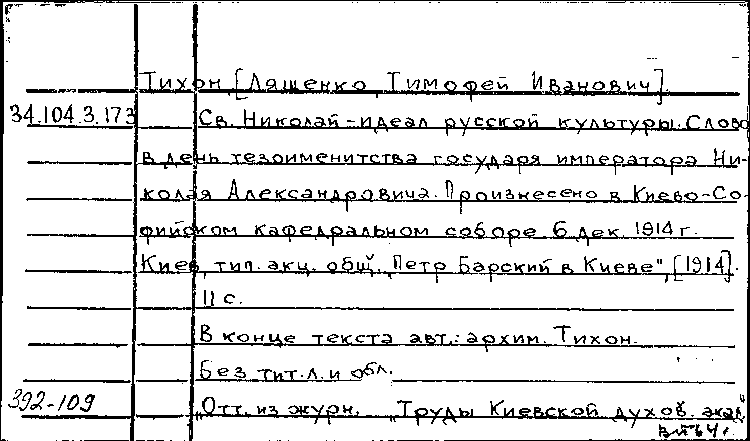 Тихон, [Ляшенко, Тимофей Иванович]
34.104.3.173 Св. Николай-идеал русской культуры. Слово
в день тезоименитства государя императора Ни-
колая Александровича. Произнесено в Киево-Со-
фийском кафедральном соборе 6 дек. 1914 г.
Киев, тип. акц. общ. „Петр Барский в Киеве", [1914].
11 с.
В конце текста авт.: архим. Тихон.
Без тит. л. и обл.
392-109 Отт. из журн. „Труды Киевской духов. акад."